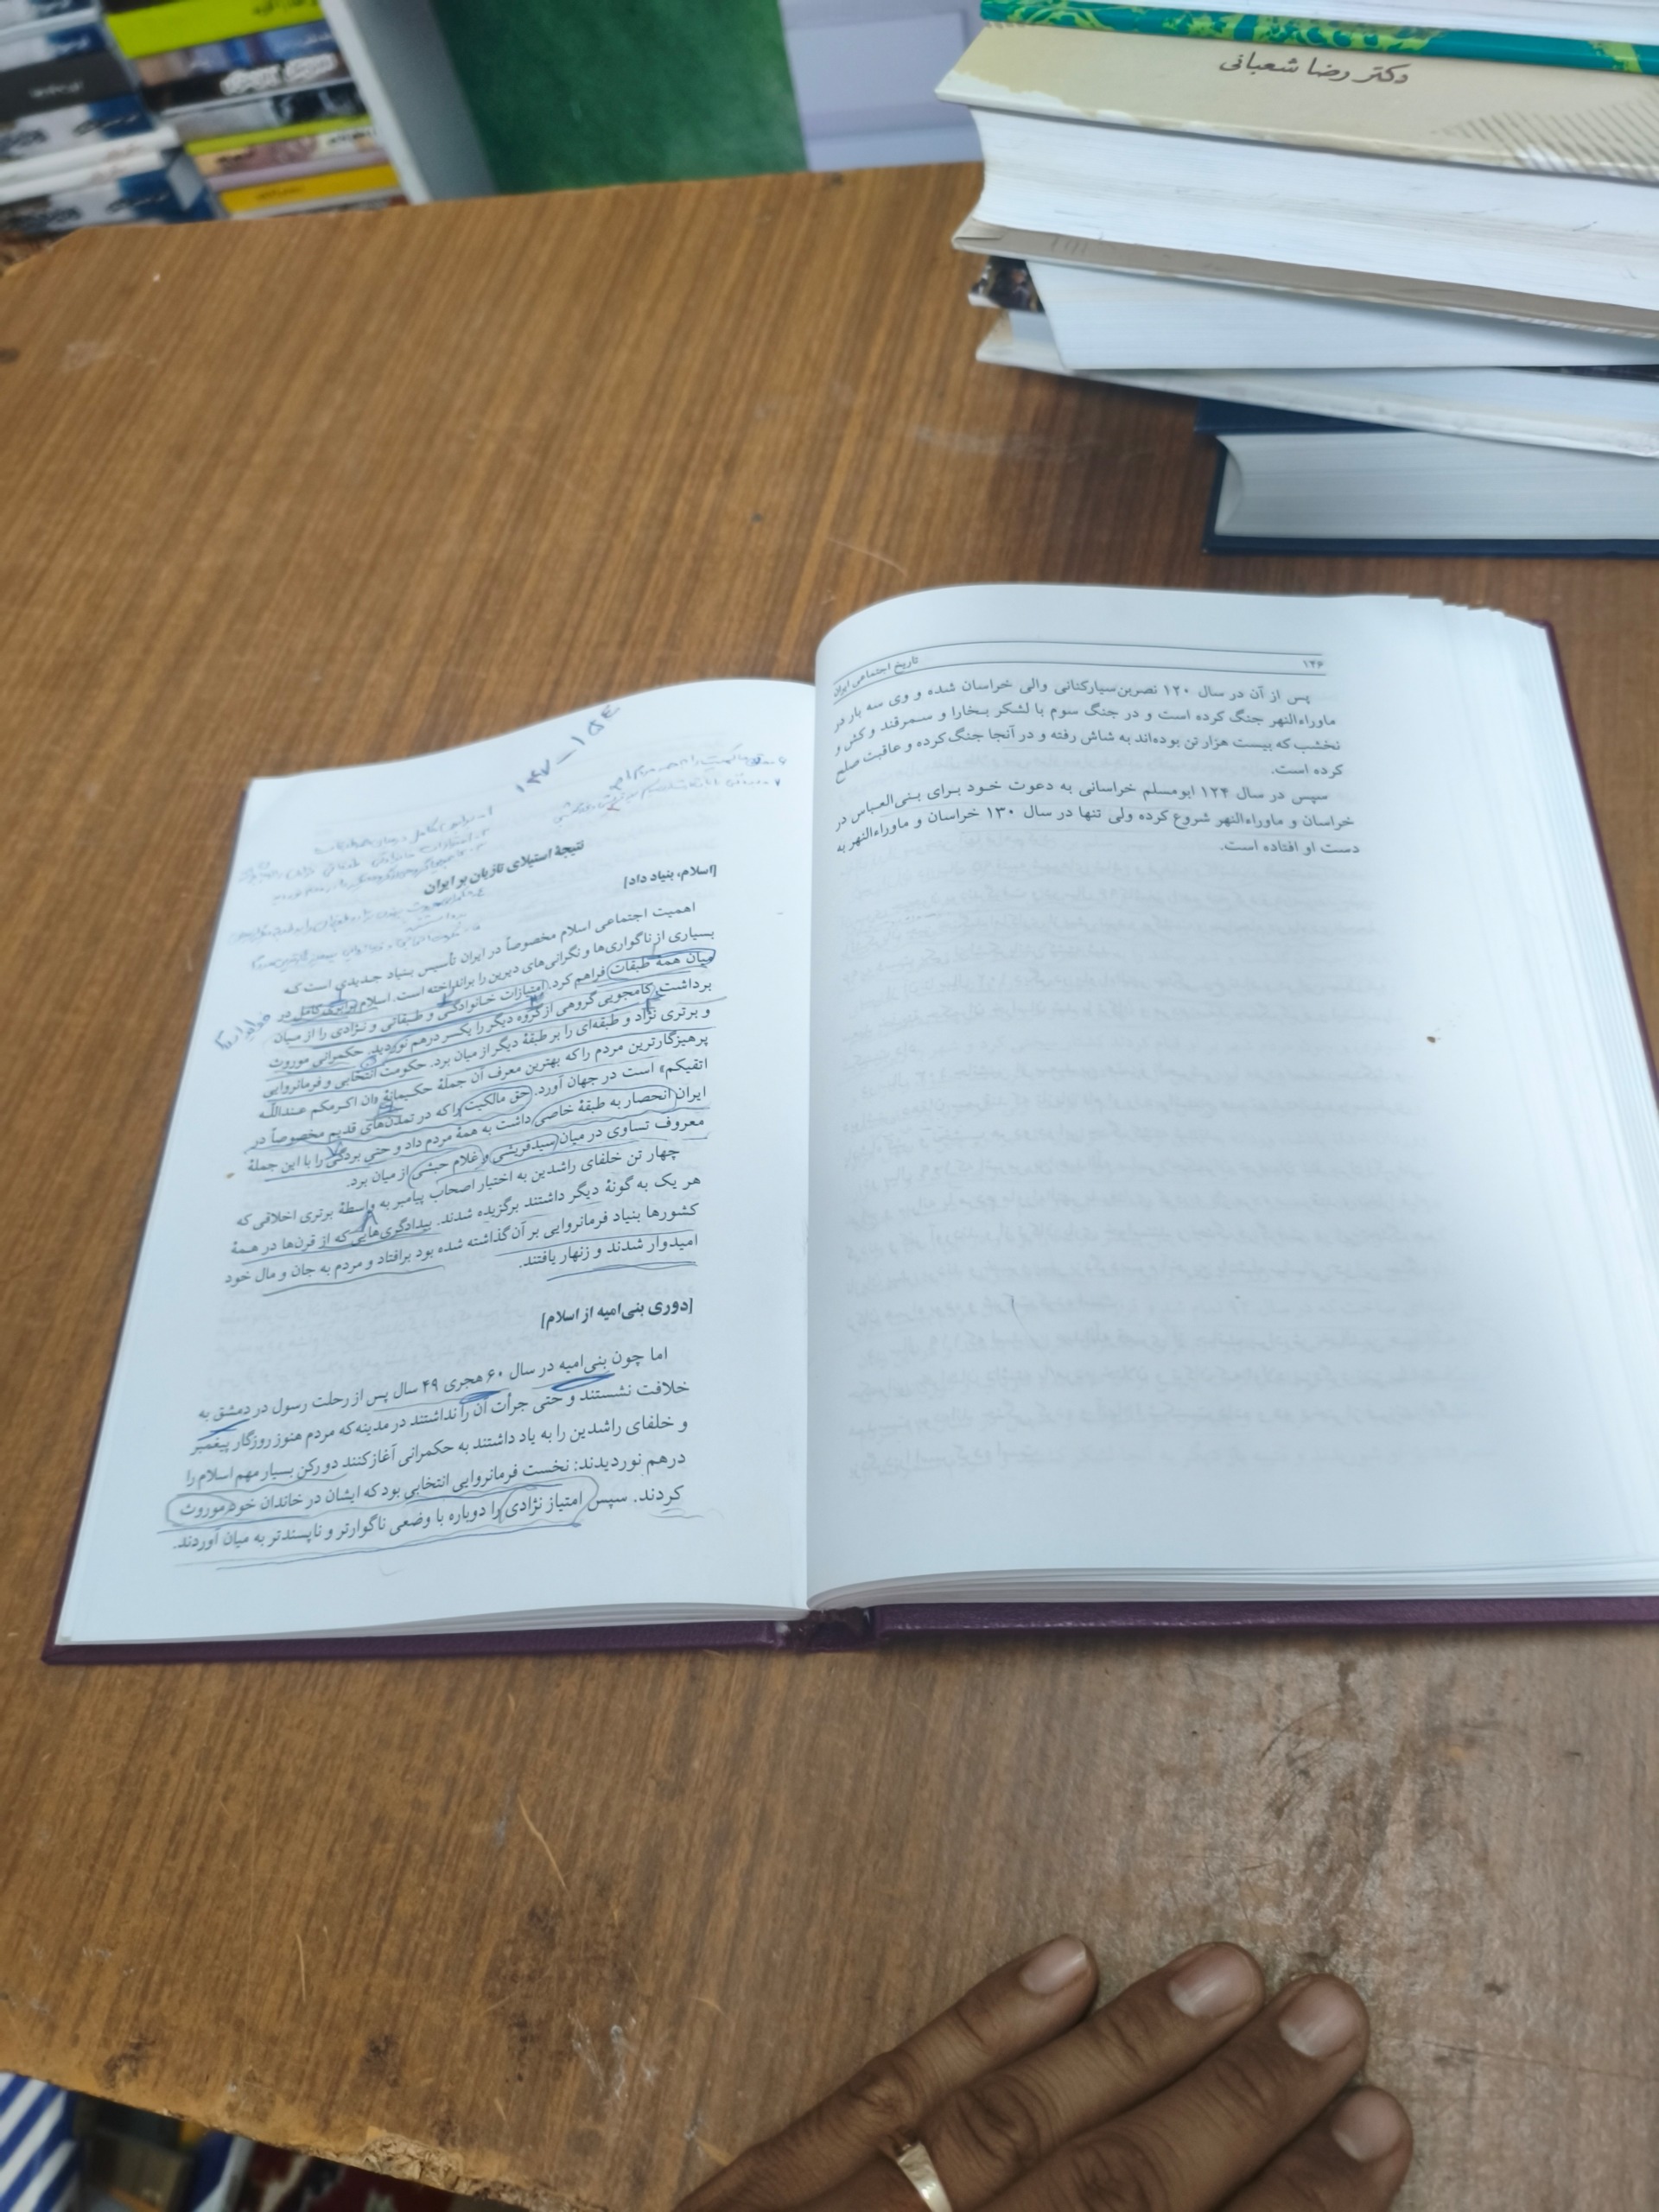 دکتر رضا شعبانی
۱۴۶
تاریخ اجتماعی ایران
پس از آن در سال ۱۲۰ نصربن‌سیارکنانی والی خراسان شده و وی سه بار در
ماوراءالنهر جنگ کرده است و در جنگ سوم با لشکر بخارا و سمرقند و کش و
نخشب که بیست هزار تن بوده‌اند به شاش رفته و در آنجا جنگ کرده و عاقبت صلح
کرده است.
سپس در سال ۱۲۴ ابومسلم خراسانی به دعوت خود برای بنی‌العباس در
خراسان و ماوراءالنهر شروع کرده ولی تنها در سال ۱۳۰ خراسان و ماوراءالنهر به
دست او افتاده است.
۱۴۷ – ۱۵۴
نتیجهٔ استیلای تازیان بر ایران
[اسلام، بنیاد داد]
اهمیت اجتماعی اسلام مخصوصاً در ایران تأسیس بنیاد جدیدی است که
بسیاری از ناگواری‌ها و نگرانی‌های دیرین را برانداخته است. اسلام برابری کامل در
میان همهٔ طبقات فراهم کرد. امتیازات خانوادگی و طبقاتی و نژادی را از میان
برداشت. کامجویی گروهی از گروه دیگر را یکسر درهم نوردید. حکمرانی موروث
و برتری نژاد و طبقه‌ای را بر طبقهٔ دیگر از میان برد. حکومت انتخابی و فرمانروایی
پرهیزگارترین مردم را که بهترین معرف آن جملهٔ حکیمانهٔ «ان اکرمکم عنداللـه
اتقیکم» است در جهان آورد. حق مالکیت را که در تمدن‌های قدیم مخصوصاً در
ایران انحصار به طبقهٔ خاصی داشت به همهٔ مردم داد و حتی بردگی را با این جملهٔ
معروف تساوی در میان سیدقریشی و غلام حبشی از میان برد.
چهار تن خلفای راشدین به اختیار اصحاب پیامبر به واسطهٔ برتری اخلاقی که
هر یک به گونهٔ دیگر داشتند برگزیده شدند. بیدادگری‌هایی که از قرن‌ها در همهٔ
کشورها بنیاد فرمانروایی بر آن گذاشته شده بود برافتاد و مردم به جان و مال خود
امیدوار شدند و زنهار یافتند.
[دوری بنی‌امیه از اسلام]
اما چون بنی‌امیه در سال ۶۰ هجری ۴۹ سال پس از رحلت رسول در دمشق به
خلافت نشستند و حتی جرأت آن را نداشتند در مدینه که مردم هنوز روزگار پیغمبر
و خلفای راشدین را به یاد داشتند به حکمرانی آغاز کنند دو رکن بسیار مهم اسلام را
درهم نوردیدند: نخست فرمانروایی انتخابی بود که ایشان در خاندان خود موروث
کردند. سپس امتیاز نژادی را دوباره با وضعی ناگوارتر و ناپسندتر به میان آوردند.